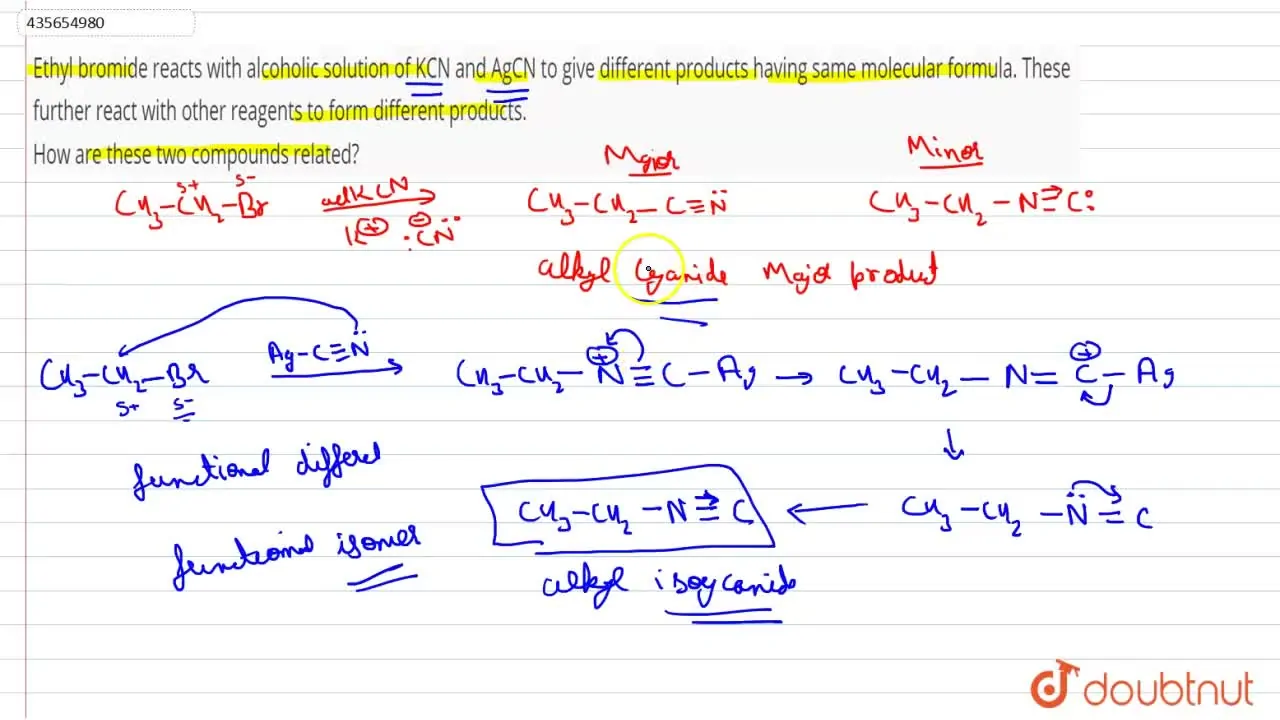 435654980
Ethyl bromide reacts with alcoholic solution of KCN and AgCN to give different products having same molecular formula. These
further react with other reagents to form different products.
How are these two compounds related?
Major
Minor
CH3-CH2-Br
δ+ δ-
alc KCN
K⊕ :C⊖N̈
CH3-CH2-C≡N̈
CH3-CH2-N≡C:
alkyl Cyanide Major product
CH3-CH2-Br
δ+ δ-
Ag-C≡N̈
CH3-CH2-N⊕≡C-Ag → CH3-CH2-N=C⊕-Ag
functional differet
CH3-CH2-N≡C
CH3-CH2-N̈=C
functional isomer
alkyl isoycanide
doubtnut